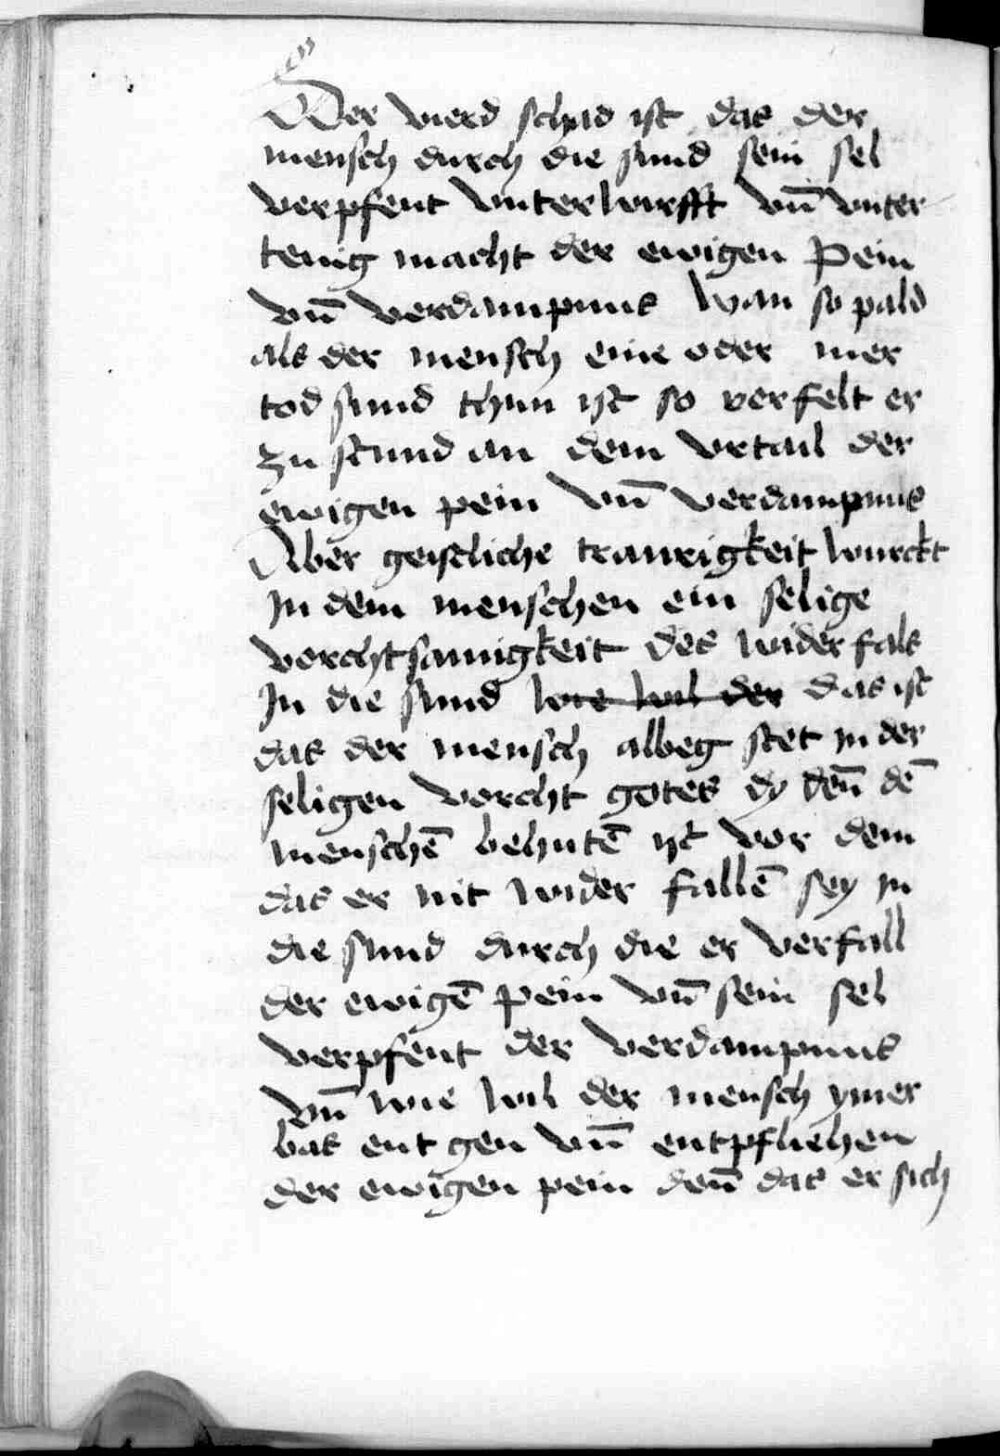 Der vierd schad ist das der
mensch durch die sund sein sel
verpfent vnterwurfft vn̄ vnter
tenig macht der ewigen Pein
vn̄ verdampnus Wan so pald
als der mensch eine oder mer
tod sund thun ist so verfelt er
zu stund an dem vrtail der
ewigen pein vn̄ verdampnus
Aber geistliche traurigkeit wurckt
In dem menschen ein selige
vorchtsamigkeit des widerfals
In die sund wie wil der das ist
das der mensch albeg stet in der
seligen vorcht gotes dy den̄ dē
menschē behutē ist vor dem
das er nit wider fallē sey in
die sund durch die er verfall
der ewigē pein vn̄ sein sel
verpfent der verdampnus
vn̄ wie wil der mensch ymer
bas ent gen vn̄ entpfliehen
der ewigen pein den̄ das er sich